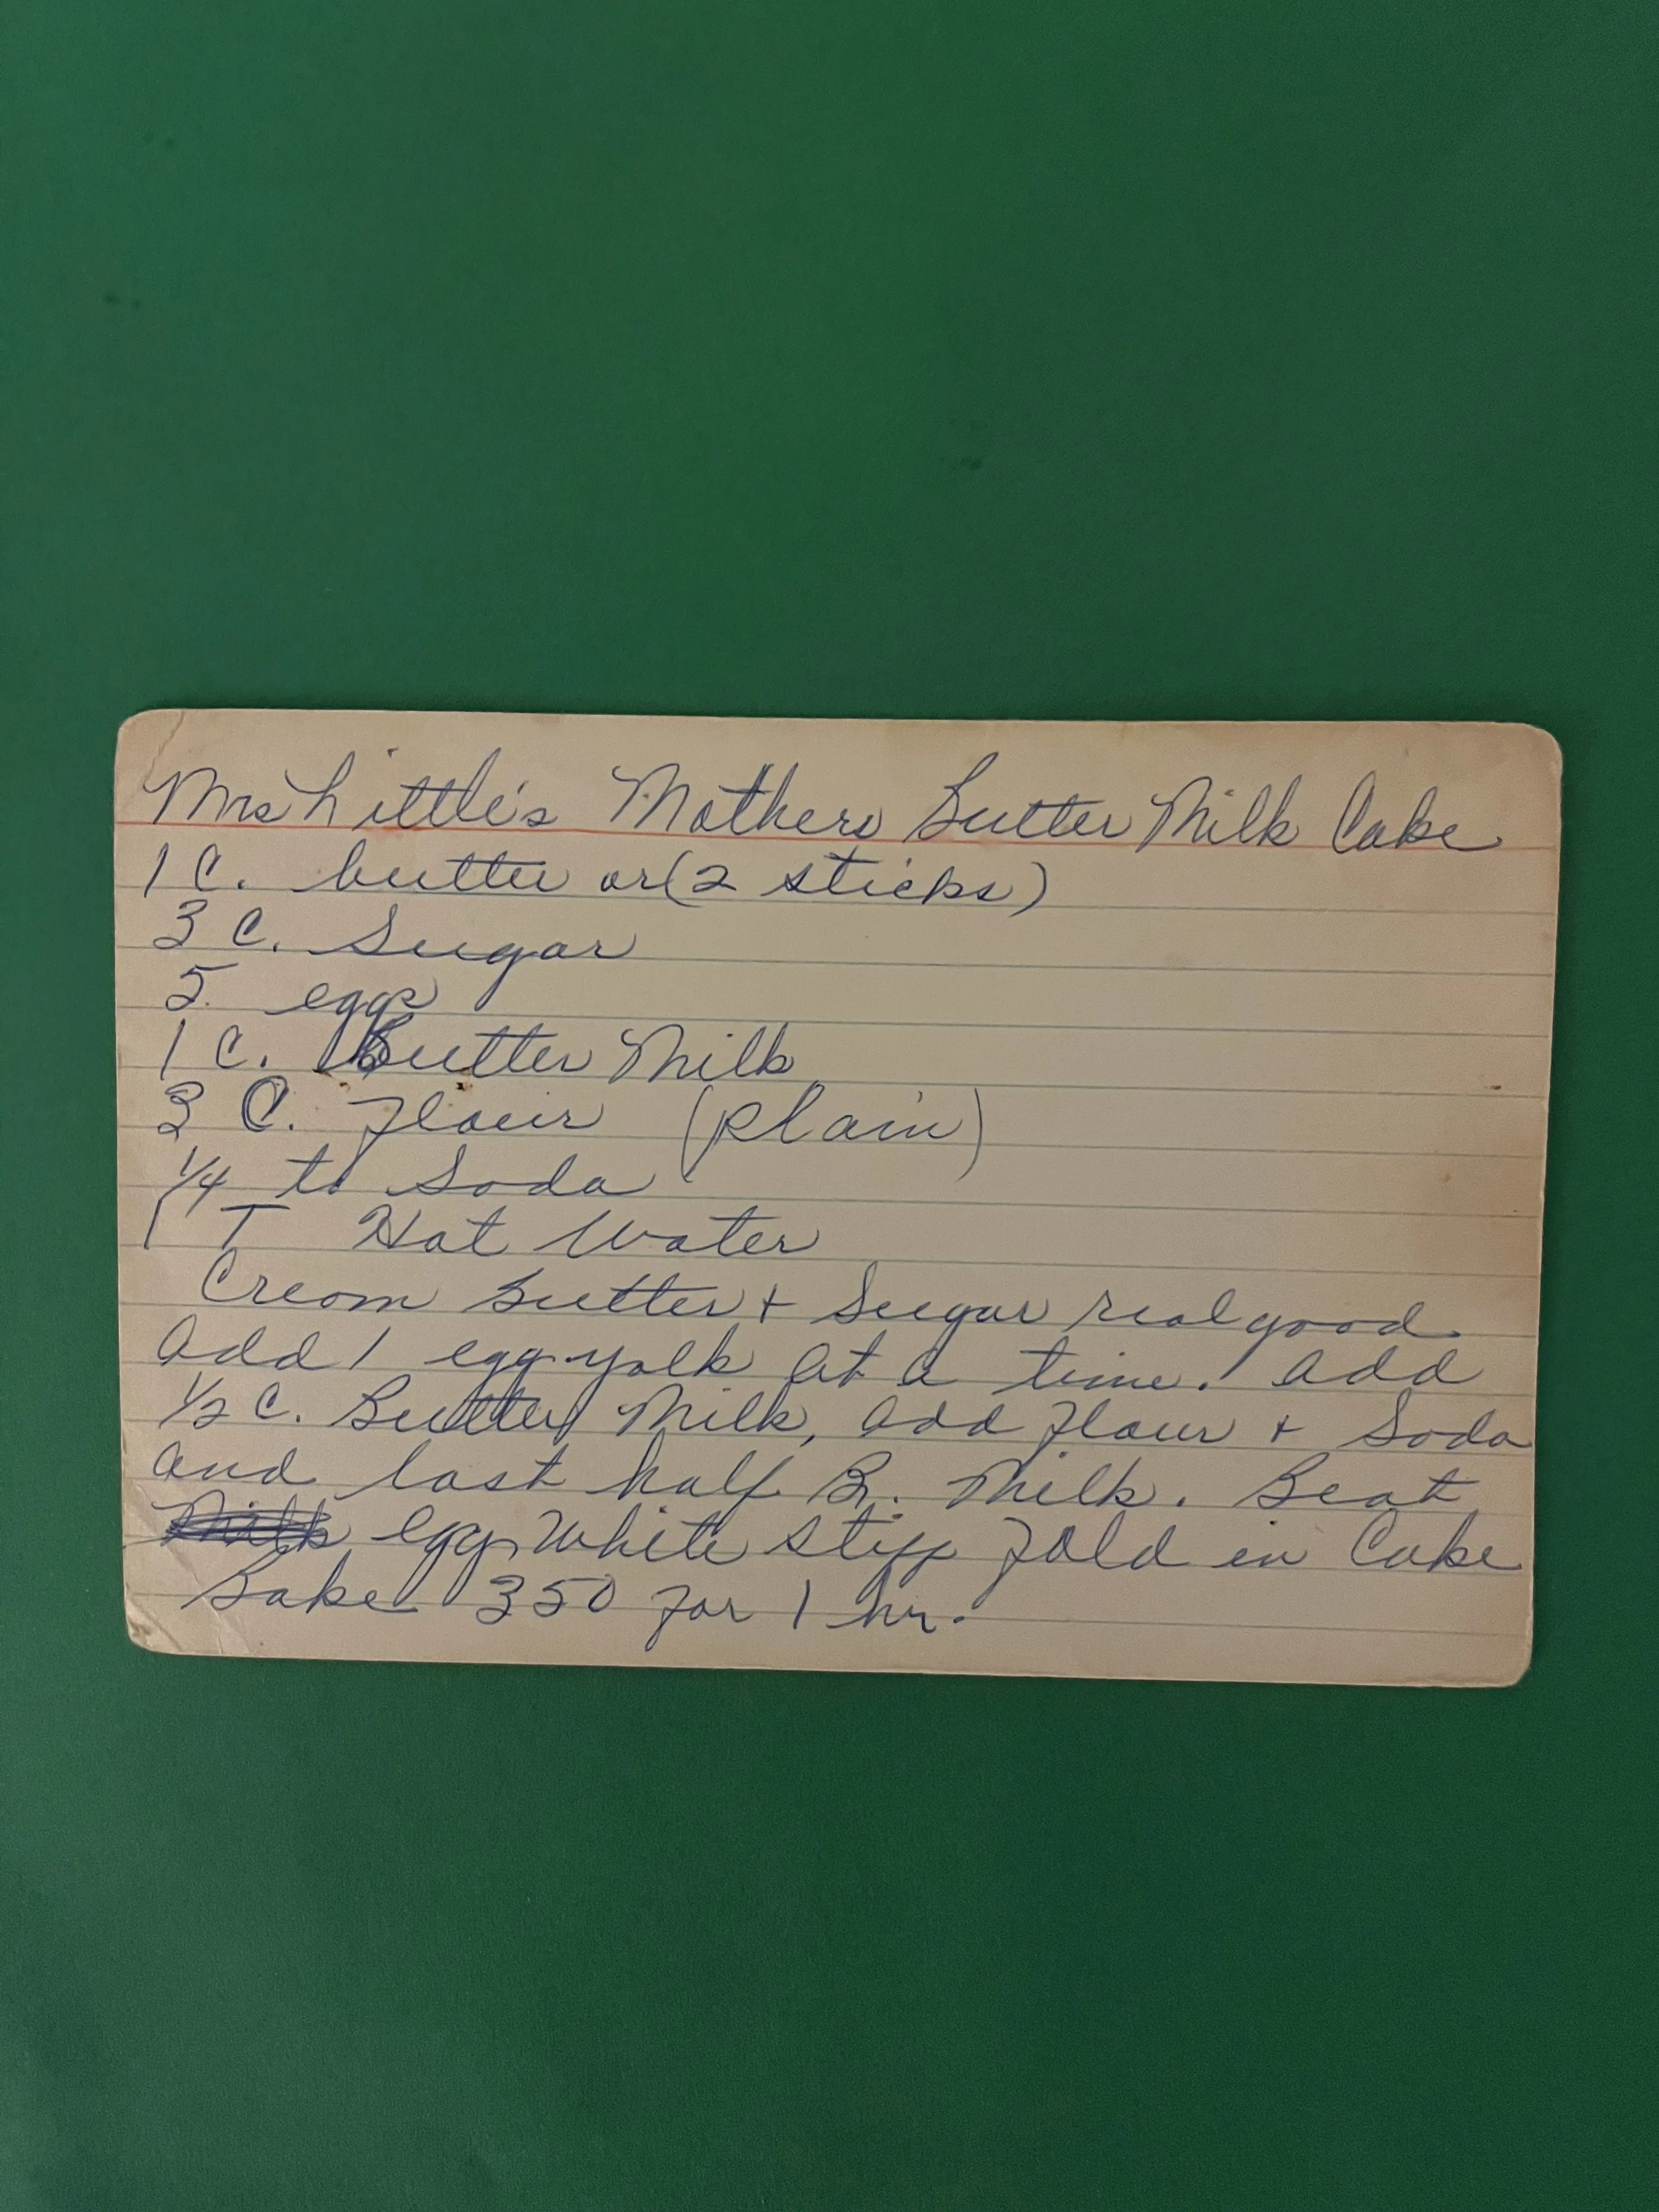 Mrs Little's Mothers Butter Milk Cake
1 C. butter or (2 sticks)
3 C. Sugar
5. eggs
1 C. Butter Milk
3 C. Flour (plain)
1/4 t. Soda
1 T Hot Water
Cream Butter + Sugar real good.
Add 1 egg yolk at a time. Add
1/2 C. Butter Milk, Add Flour + Soda
and last half B. Milk. Beat
egg white stiff fold in Cake
Bake 350 for 1 hr.